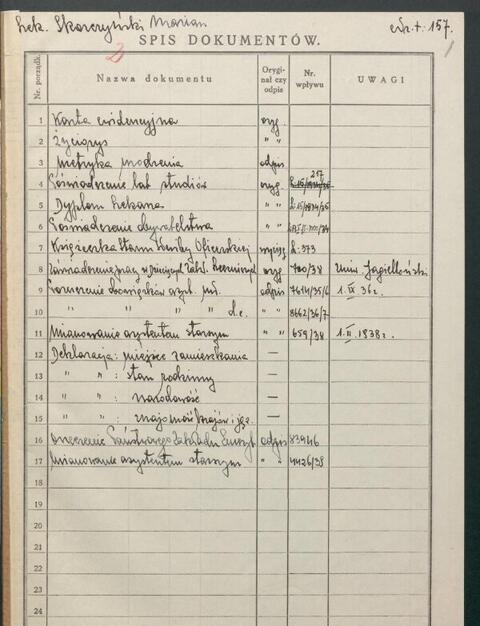 Lek. Skorczyński Marian
SPIS DOKUMENTÓW.
157.
Nr. porządk. Nazwa dokumentu Orygi- nał czy odpis Nr. wpływu UWAGI
1 Karta ewidencyjna oryg.
2 Życiorys " "
3 Metryka urodzenia odpis
4 Poświadczenie lat studiów oryg. 217
5 Dyplom lekarza " "
6 Poświadczenie obywatelstwa " "
7 Książeczka Stanu Służby Oficerskiej wyciąg L. 373
8 oryg 700/38 Uniw. Jagielloński
9 odpis 7614/35/6 1. IX 36 r.
10 " " d.c. " " 8662/36/7
11 Mianowanie asystentem starszym " " 659/38 1. II. 1838 r.
12 Deklaracja: miejsce zamieszkania —
13 " " : stan rodzinny —
14 " " : narodowość —
15 " " : znajomość krajów i jęz. —
16 Orzeczenie Państwowego Zakładu odpis 83946
17 Mianowanie asystentem starszym " " 4426/39
18
19
20
21
22
23
24